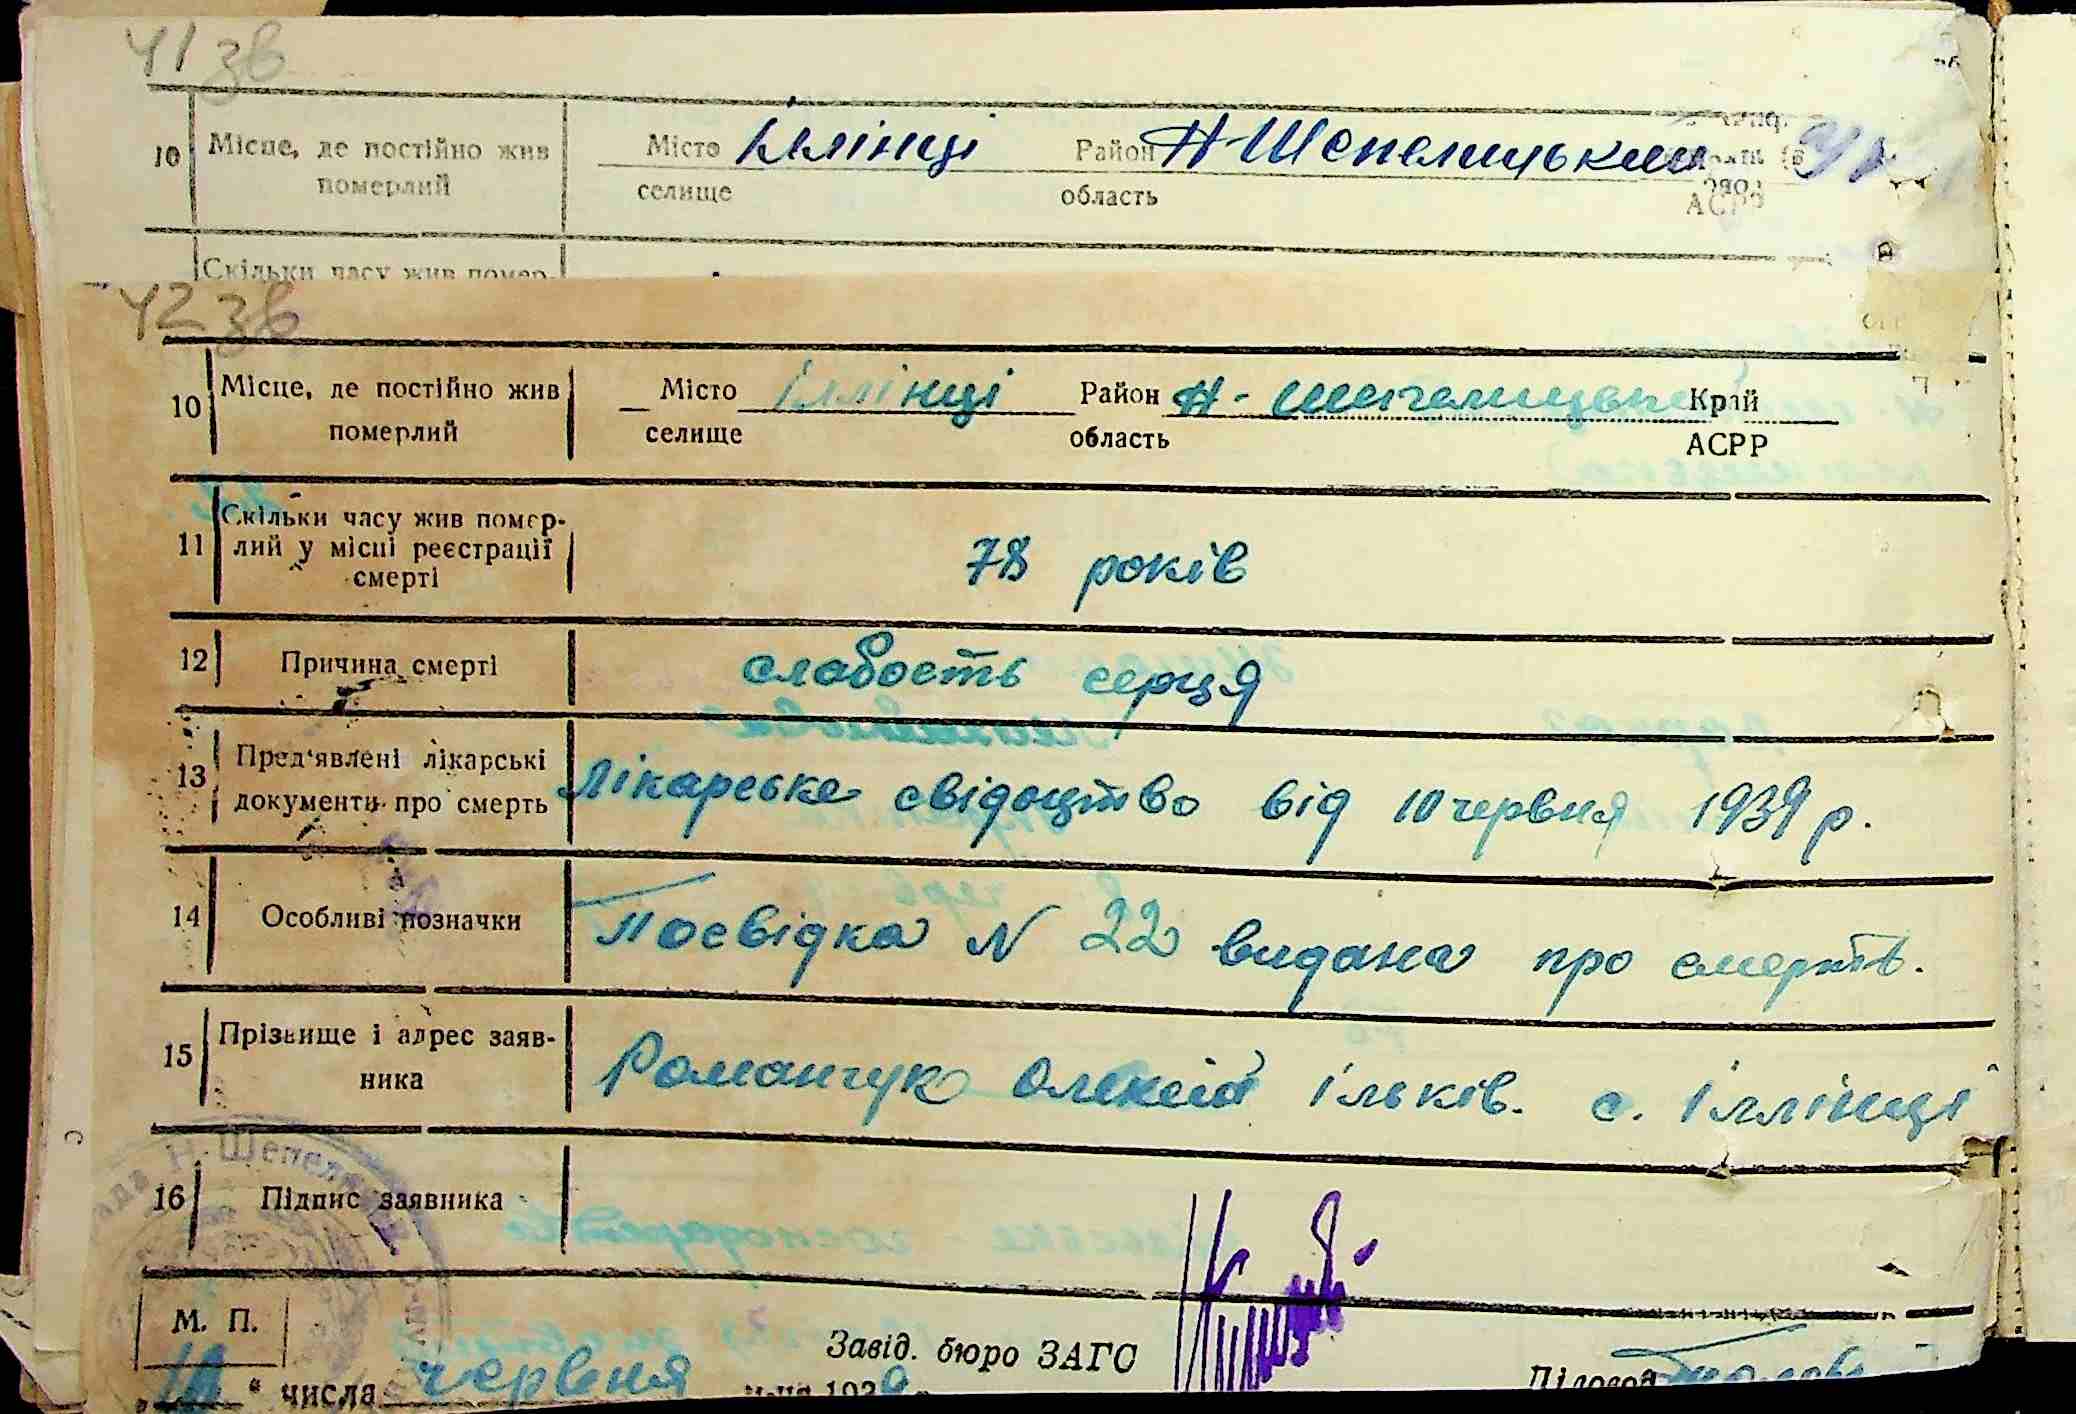 41 зв
10 Місце, де постійно жив Місто Іллінці Район Н Шепелицький
померлий селище область АСРР
Скільки часу жив помер-
42 зв
10 Місце, де постійно жив Місто Іллінці Район Н-Шепелицький Край
померлий селище область АСРР
11 Скільки часу жив помер-
лий у місці реєстрації 78 років
смерті
12 Причина смерті слабость серця
13 Пред'явлені лікарські Лікарське свідоцтво від 10 червня 1939 р.
документи про смерть
14 Особливі позначки Посвідка N 22 видана про смерть.
15 Прізвище і адрес заяв- Романчук Олексій Ільків. с. Іллінці
ника
16 Підпис заявника
Н. Шепели
М. П.
Завід. бюро ЗАГС
„10" числа червня 1939 Діловод